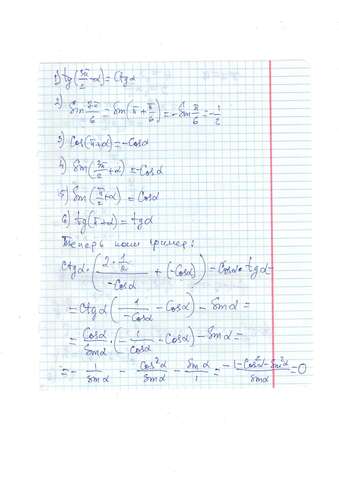 1) tg(3π/2 - α) = Ctgα
2) Sin 7π/6 = Sin(π + π/6) = -Sin π/6 = -1/2
3) Cos(π+α) = -Cosα
4) Sin(3π/2 + α) = -Cosα
5) Sin(π/2 + α) = Cosα
6) tg(π+α) = tgα
Теперь наш пример:
Ctgα·(2·1/2 / -Cosα + (-Cosα)) - Cosα·tgα =
= Ctgα(1/-Cosα - Cosα) - Sinα =
= Cosα/Sinα·(-1/Cosα - Cosα) - Sinα =
= -1/Sinα - Cos²α/Sinα - Sinα/1 = -1-Cos²α-Sin²α/Sinα = 0